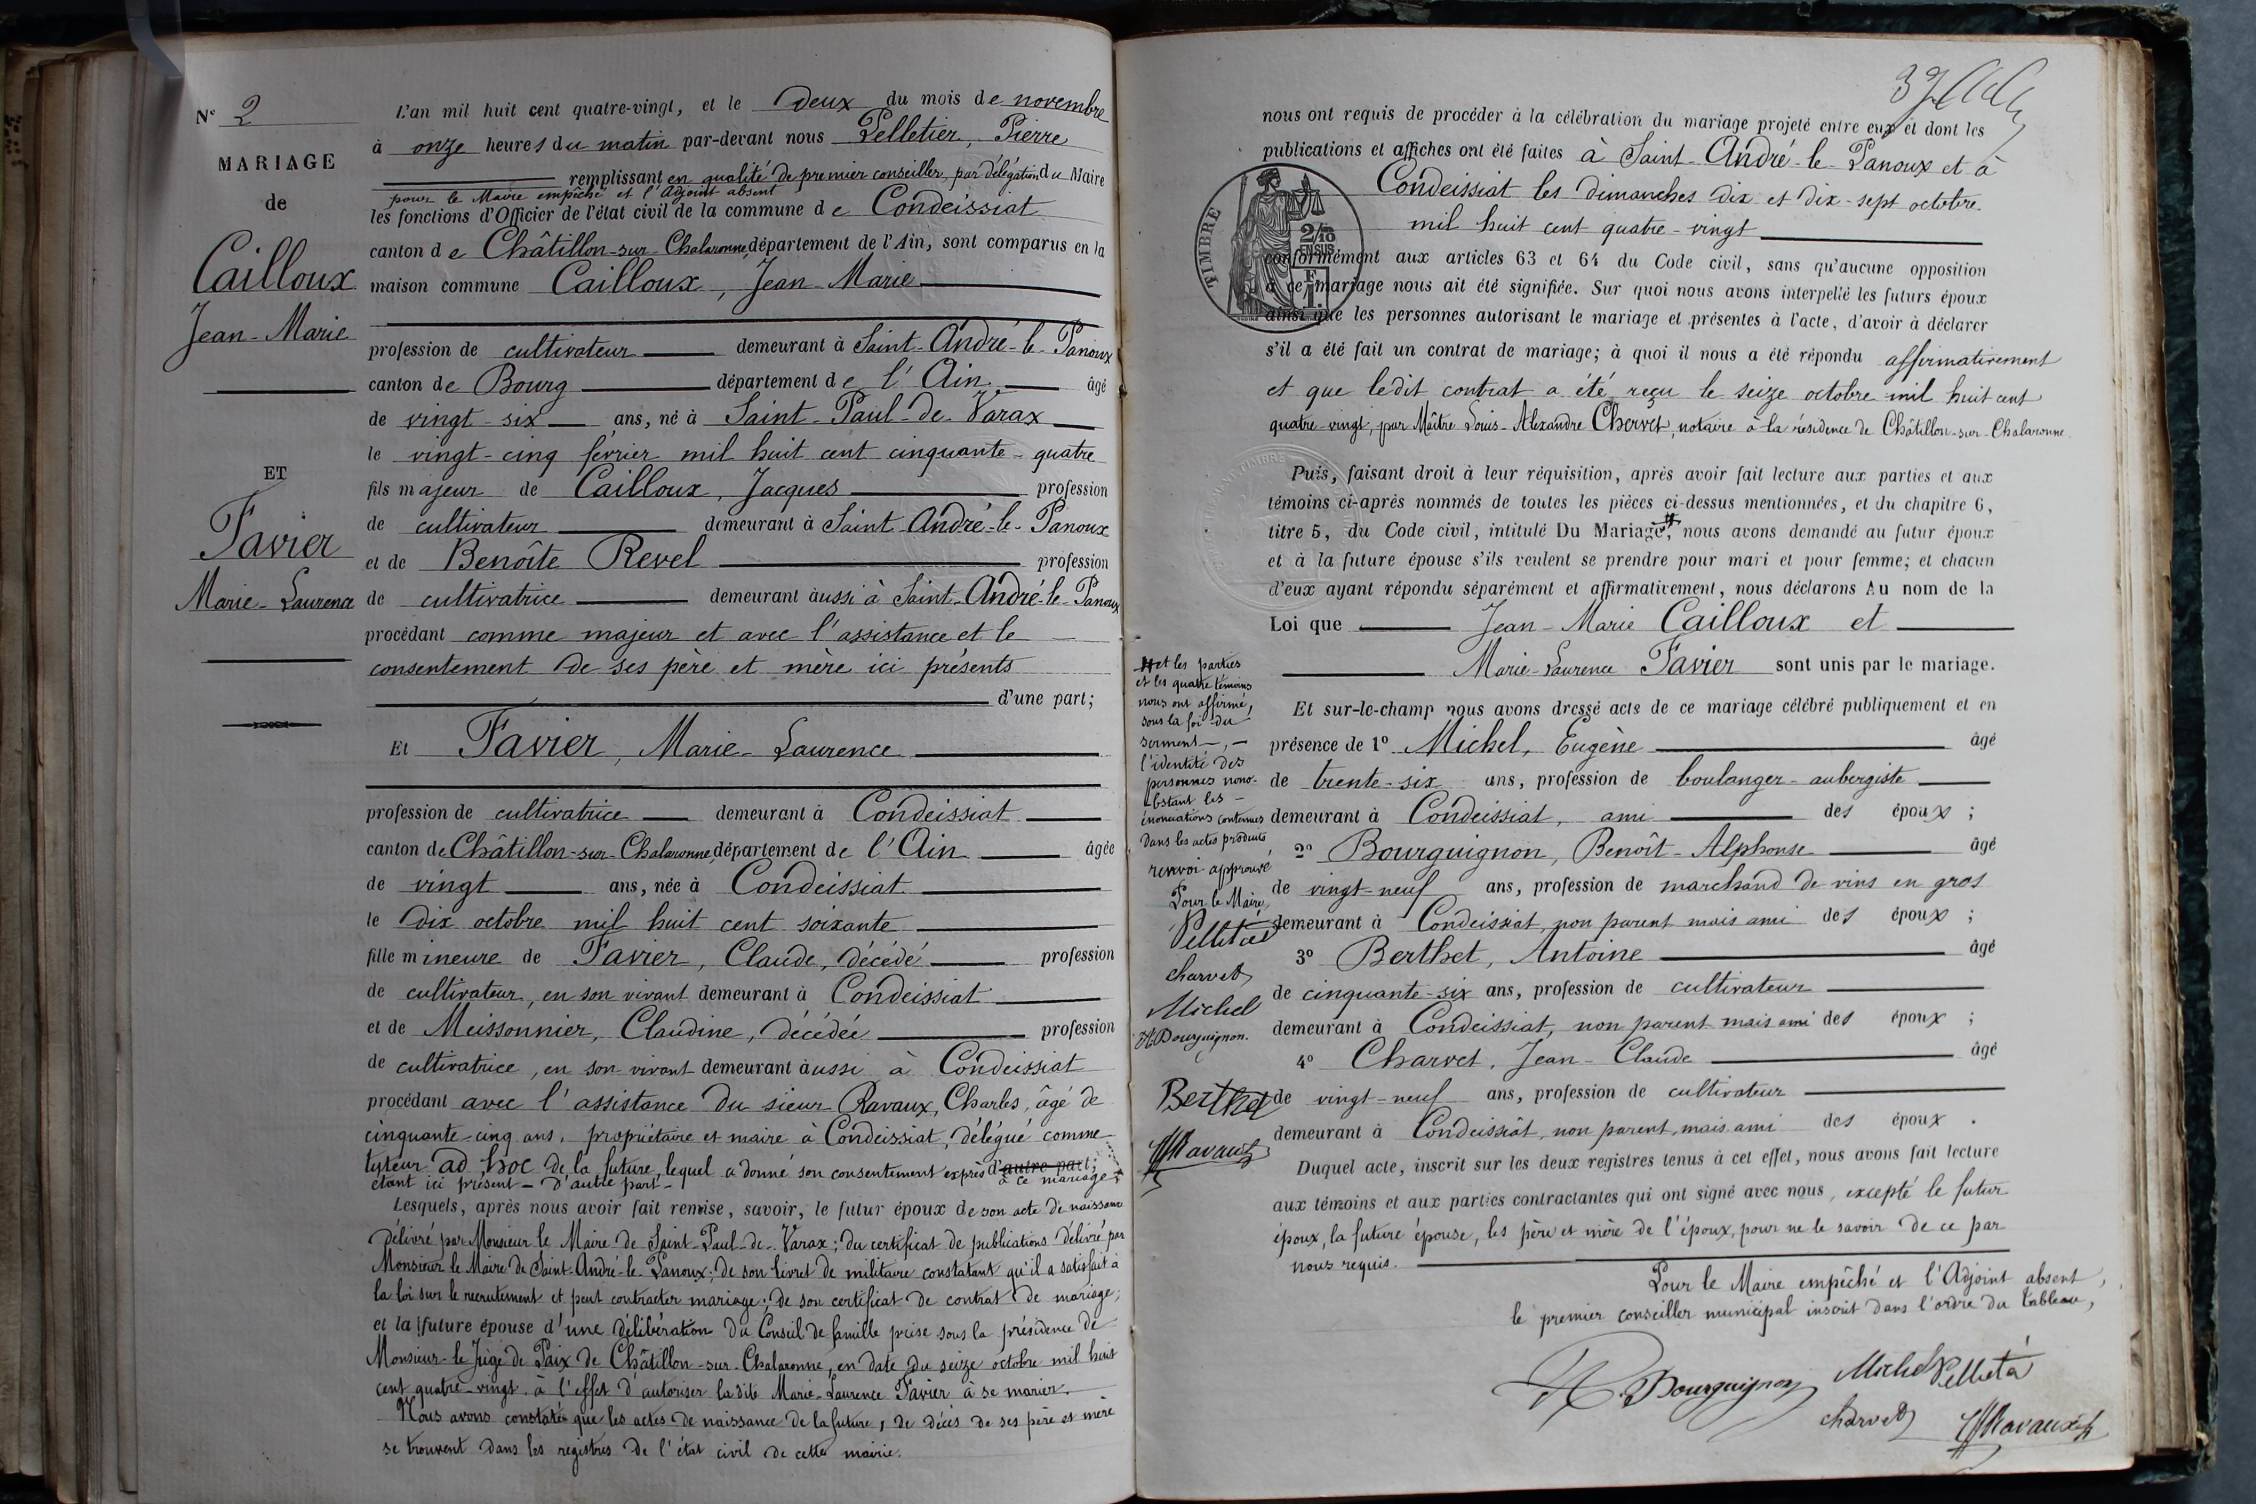 N° 2
MARIAGE
de
Cailloux
Jean-Marie
ET
Favier
Marie-Laurence
L'an mil huit cent quatre-vingt, et le deux du mois de novembre
à onze heures du matin par-devant nous Pelletier, Pierre
remplissant en qualité de premier conseiller, par délégation du Maire
pour le Maire empêché et l'Adjoint absent
les fonctions d'Officier de l'état civil de la commune de Condeissiat
canton de Châtillon-sur-Chalaronne, département de l'Ain, sont comparus en la
maison commune Cailloux, Jean-Marie
profession de cultivateur demeurant à Saint-André-le-Panoux
canton de Bourg département de l'Ain âgé
de vingt-six ans, né à Saint-Paul-de-Varax
le vingt-cinq février mil huit cent cinquante-quatre
fils majeur de Cailloux, Jacques profession
de cultivateur demeurant à Saint-André-le-Panoux
et de Benoîte Revel profession
de cultivatrice demeurant aussi à Saint-André-le-Panoux
procédant comme majeur et avec l'assistance et le
consentement de ses père et mère ici présents
d'une part;
Et Favier, Marie-Laurence
profession de cultivatrice demeurant à Condeissiat
canton de Châtillon-sur-Chalaronne, département de l'Ain âgée
de vingt ans, née à Condeissiat
le dix octobre mil huit cent soixante
fille mineure de Favier, Claude, décédé profession
de cultivateur, en son vivant demeurant à Condeissiat
et de Meissonnier, Claudine, décédée profession
de cultivatrice, en son vivant demeurant aussi à Condeissiat
procédant avec l'assistance du sieur Ravaux, Charles, âgé de
cinquante-cinq ans, propriétaire et maire à Condeissiat, délégué comme
tuteur ad hoc de la future, lequel a donné son consentement exprès d'autre part;
étant ici présent - d'autre part - à ce mariage
Lesquels, après nous avoir fait remise, savoir, le futur époux de son acte de naissance
délivré par Monsieur le Maire de Saint-Paul-de-Varax; du certificat de publications délivré par
Monsieur le Maire de Saint-André-le-Panoux; de son livret de militaire constatant qu'il a satisfait à
la loi sur le recrutement et peut contracter mariage; de son certificat de contrat de mariage;
et la future épouse d'une délibération du Conseil de famille prise sous la présidence de
Monsieur le Juge de Paix de Châtillon-sur-Chalaronne, en date du seize octobre mil huit
cent quatre-vingt, à l'effet d'autoriser la dite Marie-Laurence Favier à se marier.
Nous avons constaté que les actes de naissance de la future, de décès de ses père et mère
se trouvent dans les registres de l'état civil de cette mairie.
nous ont requis de procéder à la célébration du mariage projeté entre eux et dont les
publications et affiches ont été faites à Saint-André-le-Panoux et à
Condeissiat les dimanches dix et dix-sept octobre
mil huit cent quatre-vingt
TIMBRE
2/10
EN SUS
F.
1.
conformément aux articles 63 et 64 du Code civil, sans qu'aucune opposition
à ce mariage nous ait été signifiée. Sur quoi nous avons interpellé les futurs époux
ainsi que les personnes autorisant le mariage et présentes à l'acte, d'avoir à déclarer
s'il a été fait un contrat de mariage; à quoi il nous a été répondu affirmativement
et que ledit contrat a été reçu le seize octobre mil huit cent
quatre-vingt, par Maître Louis-Alexandre Chervet, notaire à la résidence de Châtillon-sur-Chalaronne.
Puis, faisant droit à leur réquisition, après avoir fait lecture aux parties et aux
témoins ci-après nommés de toutes les pièces ci-dessus mentionnées, et du chapitre 6,
titre 5, du Code civil, intitulé Du Mariage, # nous avons demandé au futur époux
et à la future épouse s'ils veulent se prendre pour mari et pour femme; et chacun
d'eux ayant répondu séparément et affirmativement, nous déclarons Au nom de la
Loi que Jean-Marie Cailloux et
Marie-Laurence Favier sont unis par le mariage.
Et sur-le-champ nous avons dressé acte de ce mariage célébré publiquement et en
présence de 1° Michel, Eugène âgé
de trente-six ans, profession de boulanger-aubergiste
demeurant à Condeissiat, ami des époux;
2° Bourguignon, Benoît-Alphonse âgé
de vingt-neuf ans, profession de marchand de vins en gros
demeurant à Condeissiat, non parent mais ami des époux;
3° Berthet, Antoine âgé
de cinquante-six ans, profession de cultivateur
demeurant à Condeissiat, non parent mais ami des époux;
4° Charvet, Jean-Claude âgé
de vingt-neuf ans, profession de cultivateur
demeurant à Condeissiat, non parent, mais ami des époux.
Duquel acte, inscrit sur les deux registres tenus à cet effet, nous avons fait lecture
aux témoins et aux parties contractantes qui ont signé avec nous, excepté le futur
époux, la future épouse, les père et mère de l'époux, pour ne le savoir de ce par
nous requis.
Pour le Maire empêché et l'Adjoint absent,
le premier conseiller municipal inscrit dans l'ordre du tableau,
Michel Pelletié
A. Bourguignon
charvet
Ravaux
# et les parties
et les quatre témoins
nous ont affirmé,
sous la foi du
serment -, -
l'identité des
personnes nono-
bstant les -
énonciations contenues
dans les actes produits
renvoi approuvé
Pour le Maire,
Pelletié
charvet
Michel
A. Bourguignon.
Berthet
Ravaux